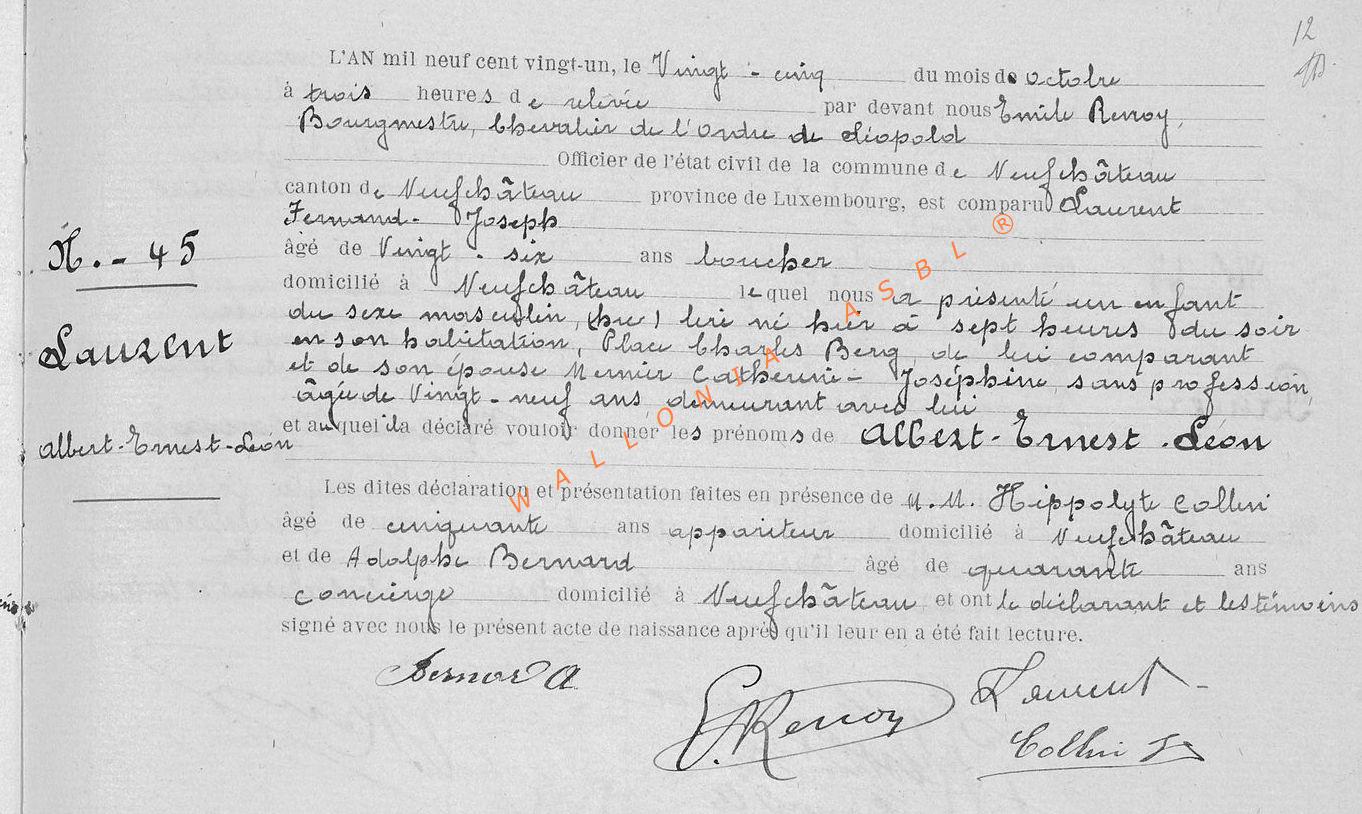 12
L'AN mil neuf cent vingt-un, le Vingt - cinq du mois de octobre
à trois heures de relevée par devant nous Emile Renoy,
Bourgmestre, Chevalier de l'ordre de Léopold
Officier de l'état civil de la commune de Neufchâteau
canton de Neufchâteau province de Luxembourg, est comparu Laurent
Fernand - Joseph
N. - 45
âgé de Vingt - six ans boucher
domicilié à Neufchâteau lequel nous a présenté un enfant
du sexe masculin, lui né hier à sept heures du soir
Laurent
en son habitation, Place Charles Berg, de lui comparant
et de son épouse Mernier Catherine - Joséphine, sans profession,
âgée de Vingt - neuf ans demeurant avec lui
et auquel il a déclaré vouloir donner les prénoms de Albert - Ernest - Léon
Albert - Ernest - Léon
Les dites déclaration et présentation faites en présence de M.M. Hippolyte Collin
âgé de cinquante ans appariteur domicilié à Neufchâteau
et de Adolphe Bernard âgé de quarante ans
concierge domicilié à Neufchâteau et ont le déclarant et les témoins
signé avec nous le présent acte de naissance après qu'il leur en a été fait lecture.
Bernard A
E. Renoy
Laurent
Collin
WALLONIA ASBL ®